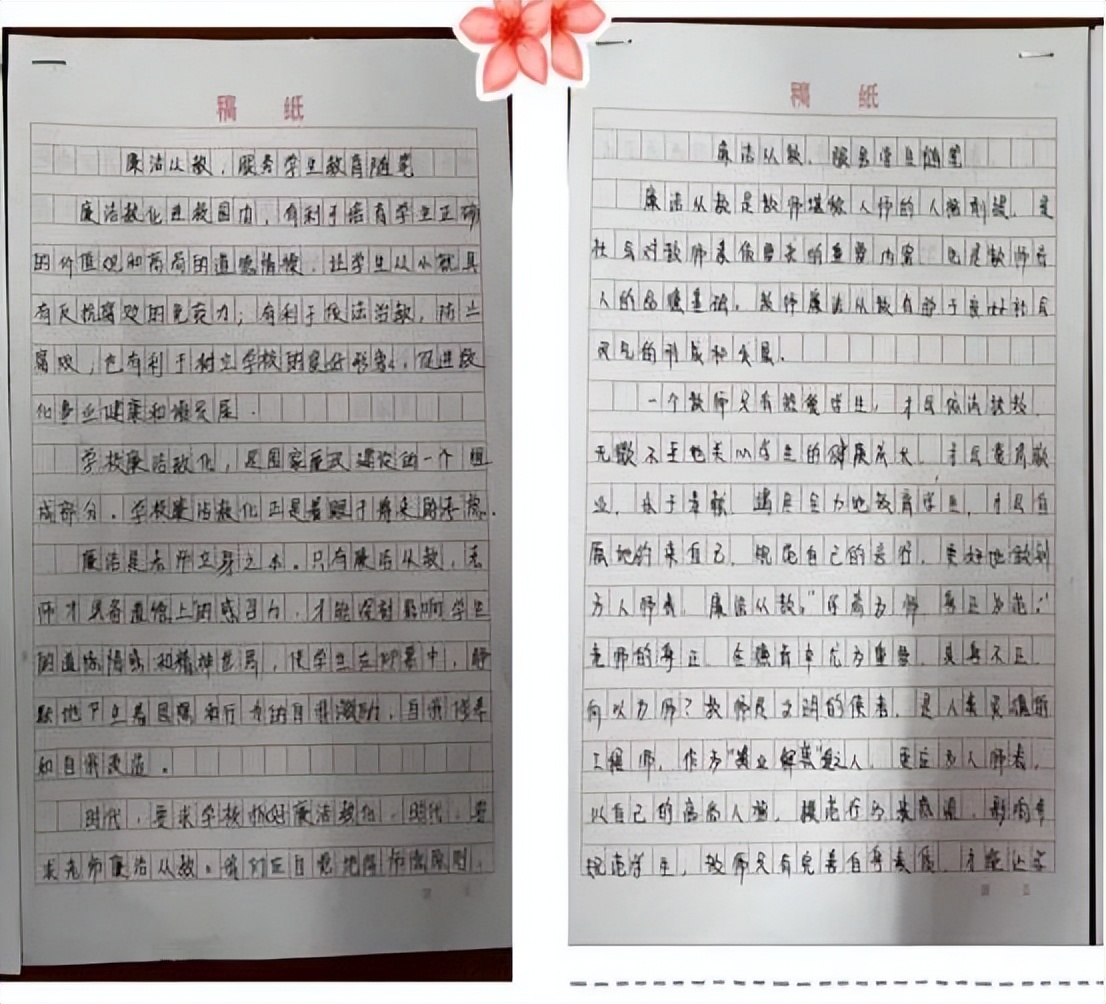 稿 纸
廉洁从教，服务学生教育随笔
廉洁教化进校园内，有利于培育学生正确
的价值观和高尚的道德情操，让学生从小就具
有反抗腐败的免疫力；有利于依法治教，防止
腐败，也有利于树立学校的良好形象，促进教
化事业健康和谐发展．
学校廉洁教化，是国家廉政建设的一个组
成部分．学校廉洁教化正是着眼于将来的
廉洁是老师立身之本。只有廉洁从教，老
师才具备道德上的感召力，才能深刻影响学生
的道德情感和精神世界，使学生在
地产生着思想和行为的自我激励，自我修养
和自我改造。
时代，要求学校抓好廉洁教化．时代，要
求老师廉洁从教。我们应自觉地
稿 纸
廉洁从教，服务学生随笔
廉洁从教是教师堪称人师的人格前提，是
社会对教师素质要求的重要内容，也是教师育
人的品德基础。教师廉洁从教有助于良好社会
风气的形成和发展．
一个教师只有热爱学生，才会依法执教，
无微不至地关心学生的健康成大，才会爱岗敬
业，乐于奉献，竭尽全力地教育学生，才会自
觉地约束自己，规范自己的言行，更好地做到
为人师表，廉洁从教。“学高为师，身正为范．”
老师的身正，在德育中尤为重要，其身不正，
何以为师？教师是文明的使者，是人类灵魂的
工程师，作为“授业解惑”之人，更应为人师表，
以自己的高尚人格，模范行为去感染，影响和
规范学生，教师只有完善自身素质，才能